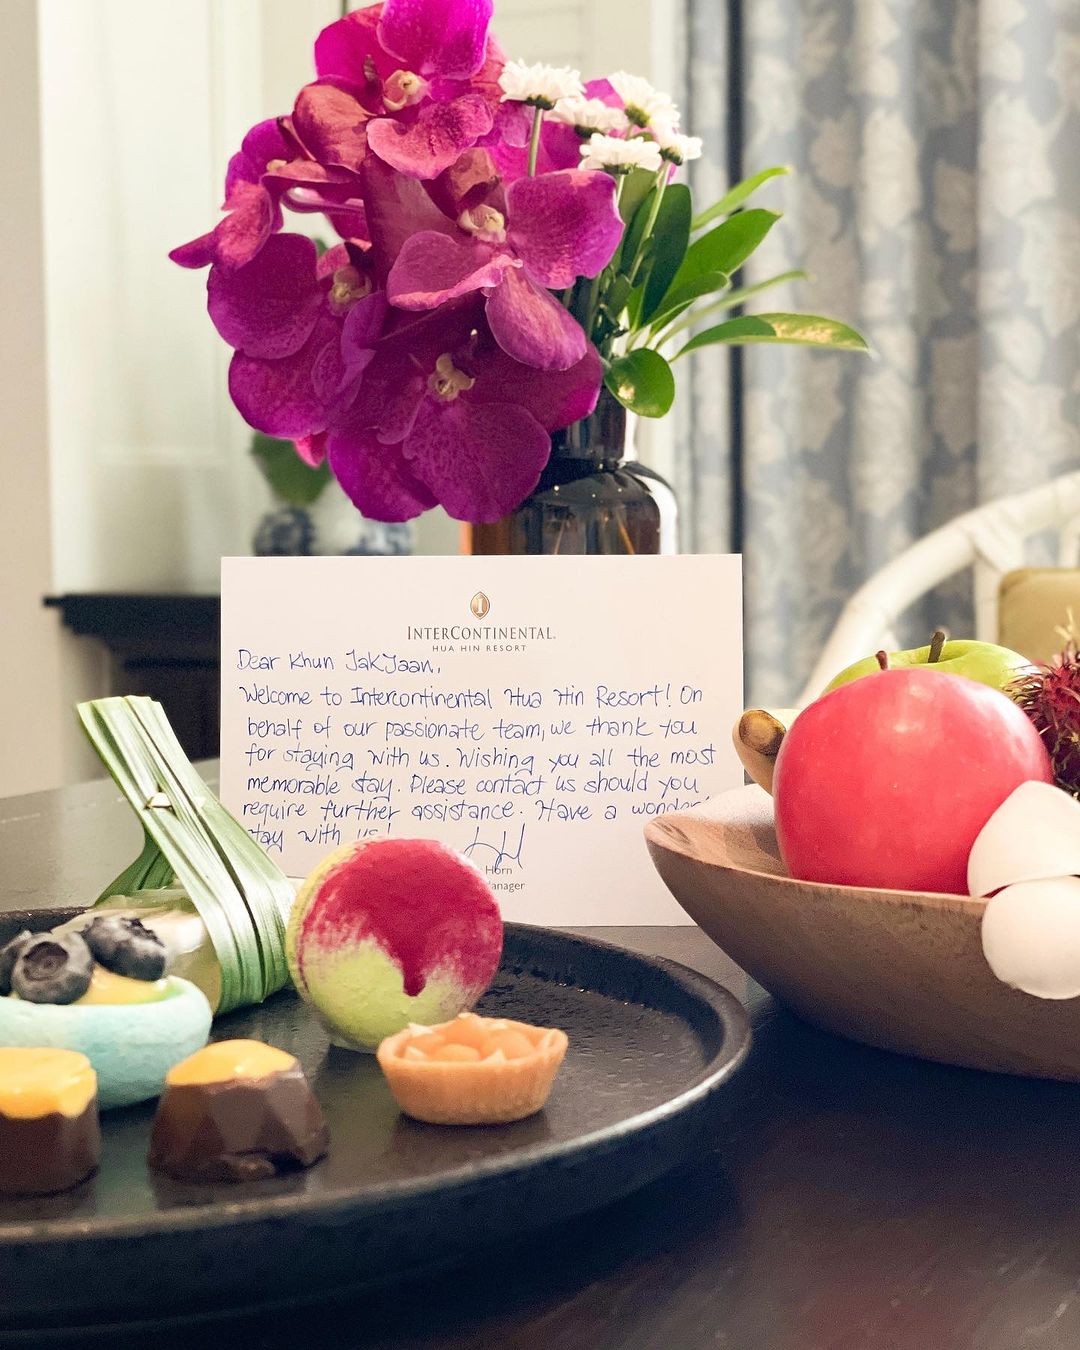 INTERCONTINENTAL.
HUA HIN RESORT
Dear Khun JakJaan,
Welcome to Intercontinental Hua Hin Resort! On
behalf of our passionate team, we thank you
for staying with us. Wishing you all the most
memorable stay. Please contact us should you
require further assistance. Have a
stay with us!
Horn